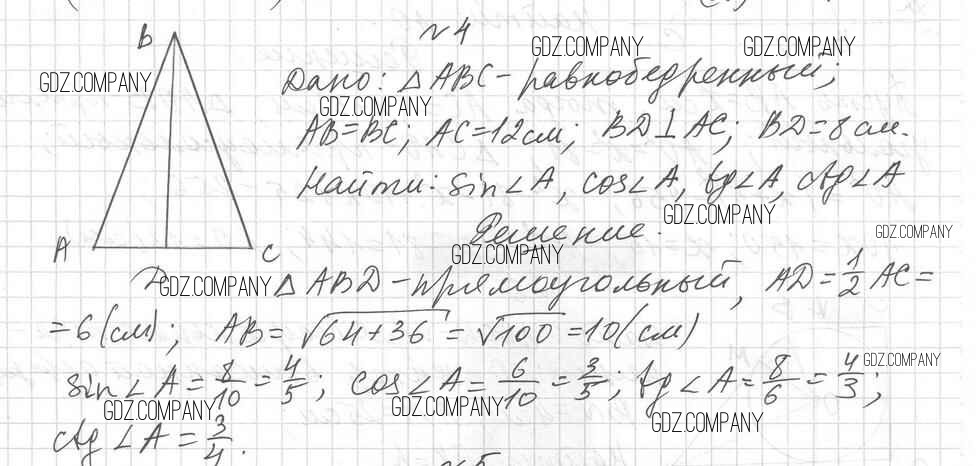 №4
B
GDZ.COMPANY GDZ.COMPANY
GDZ.COMPANY
Дано: △ABC - равнобедренный;
GDZ.COMPANY
AB=BC; AC=12см; BD⊥AC; BD=8см.
Найти: sin∠A, cos∠A, tg∠A, ctg∠A
GDZ.COMPANY
Решение.
GDZ.COMPANY
GDZ.COMPANY
A C
D
GDZ.COMPANY
△ABD - прямоугольный, AD = 1/2 AC =
= 6 (см); AB = √64+36 = √100 = 10 (см)
GDZ.COMPANY
sin∠A = 8/10 = 4/5; cos∠A = 6/10 = 3/5; tg∠A = 8/6 = 4/3;
GDZ.COMPANY GDZ.COMPANY GDZ.COMPANY
ctg∠A = 3/4.